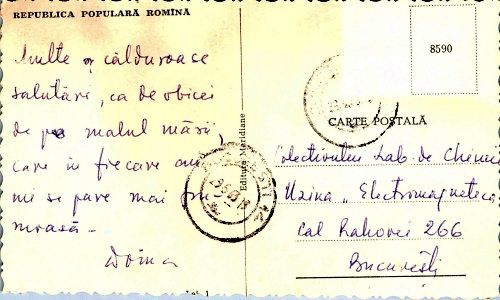 REPUBLICA POPULARĂ ROMÎNĂ
Multe și călduroase
salutări, ca de obicei
de pe malul mării,
care în fiecare an
mi se pare mai fru-
moasă.
Doina
Editura Meridiane
8590
CARTE POSTALĂ
Colectivului Lab. de Chimie
Uzina „Electromagnetica
Cal Rahovei 266
București